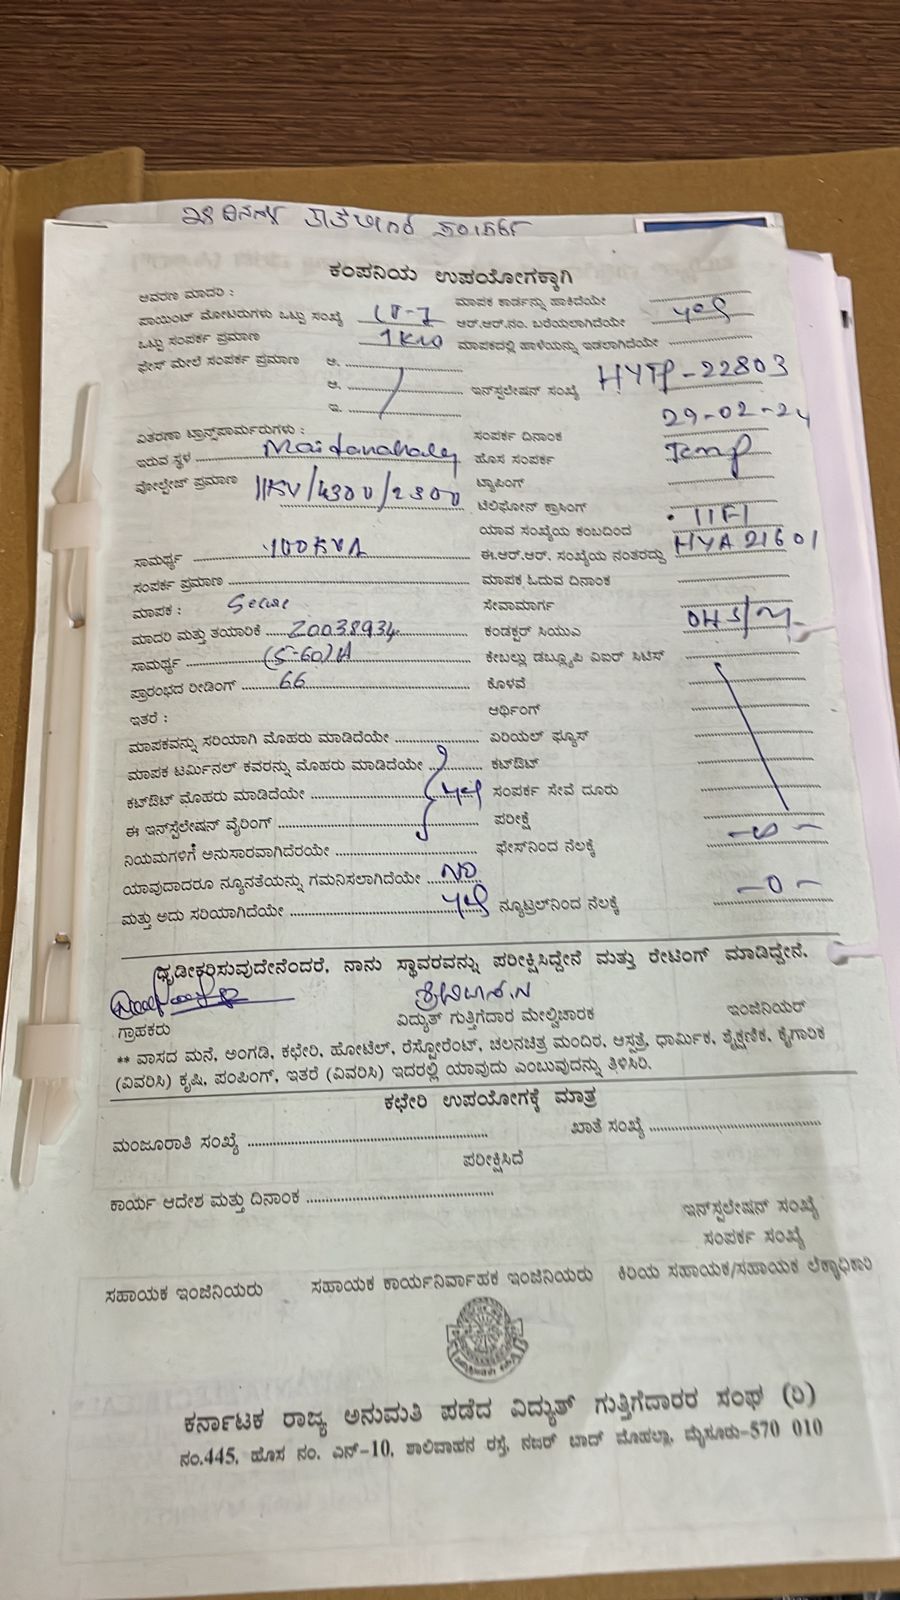 28 ದಿನಗಳ ತಾತ್ಕಾಲಿಕ ಸಂಪರ್ಕ
ಕಂಪನಿಯ ಉಪಯೋಗಕ್ಕಾಗಿ
ಆವರಣ ಮಾದರಿ : ಮಾಪಕ ಕಾರ್ಡನ್ನು ಹಾಕಿದೆಯೇ
ಪಾಯಿಂಟ್ ಮೋಟರುಗಳು ಒಟ್ಟು ಸಂಖ್ಯೆ LT-7 ಆರ್.ಆರ್.ನಂ. ಬರೆಯಲಾಗಿದೆಯೇ yes
ಒಟ್ಟು ಸಂಪರ್ಕ ಪ್ರಮಾಣ 1KW ಮಾಪಕದಲ್ಲಿ ಹಾಳೆಯನ್ನು ಇಡಲಾಗಿದೆಯೇ
ಫೇಸ್ ಮೇಲೆ ಸಂಪರ್ಕ ಪ್ರಮಾಣ ಅ.
ಆ. ಇನ್‌ಸ್ಟಲೇಷನ್ ಸಂಖ್ಯೆ HYTP-22803
ಇ. 29-02-24
ವಿತರಣಾ ಟ್ರಾನ್ಸ್‌ಫಾರ್ಮರುಗಳು : ಸಂಪರ್ಕ ದಿನಾಂಕ
ಇರುವ ಸ್ಥಳ Maidanahally ಹೊಸ ಸಂಪರ್ಕ Temp
ವೋಲ್ಟೇಜ್ ಪ್ರಮಾಣ 11KV/430V/230V ಟ್ಯಾಪಿಂಗ್
ಟೆಲಿಫೋನ್ ಕ್ರಾಸಿಂಗ್
ಯಾವ ಸಂಖ್ಯೆಯ ಕಂಬದಿಂದ
ಸಾಮರ್ಥ್ಯ 100KVA ಈ.ಆರ್.ಆರ್. ಸಂಖ್ಯೆಯ ನಂತರದ್ದು HYA21601
ಸಂಪರ್ಕ ಪ್ರಮಾಣ ಮಾಪಕ ಓದುವ ದಿನಾಂಕ
ಮಾಪಕ : Secure ಸೇವಾಮಾರ್ಗ
ಮಾದರಿ ಮತ್ತು ತಯಾರಿಕೆ 20038934 ಕಂಡಕ್ಟರ್ ಸಿಯುಎ
ಸಾಮರ್ಥ್ಯ (5-60)A ಕೇಬಲ್ಲು ಡಬ್ಲ್ಯೂಪಿ ವಿಐಆರ್ ಸಿಟಿಸ್
ಪ್ರಾರಂಭದ ರೀಡಿಂಗ್ 66 ಕೊಳವೆ
ಇತರೆ : ಆರ್ಥಿಂಗ್
ಮಾಪಕವನ್ನು ಸರಿಯಾಗಿ ಮೊಹರು ಮಾಡಿದೆಯೇ ಎರಿಯಲ್ ಫ್ಯೂಸ್
ಮಾಪಕ ಟರ್ಮಿನಲ್ ಕವರನ್ನು ಮೊಹರು ಮಾಡಿದೆಯೇ ಕಟ್‌ಔಟ್
ಕಟ್‌ಔಟ್ ಮೊಹರು ಮಾಡಿದೆಯೇ yes ಸಂಪರ್ಕ ಸೇವೆ ದೂರು
ಈ ಇನ್‌ಸ್ಟೆಲೇಷನ್ ವೈರಿಂಗ್ ಪರೀಕ್ಷೆ
ನಿಯಮಗಳಿಗೆ ಅನುಸಾರವಾಗಿದೆರಯೇ ಫೇಸ್‌ನಿಂದ ನೆಲಕ್ಕೆ -0-
ಯಾವುದಾದರೂ ನ್ಯೂನತೆಯನ್ನು ಗಮನಿಸಲಾಗಿದೆಯೇ NO
ಮತ್ತು ಅದು ಸರಿಯಾಗಿದೆಯೇ yes ನ್ಯೂಟ್ರಲ್‌ನಿಂದ ನೆಲಕ್ಕೆ -0-
ಧೃಡೀಕರಿಸುವುದೇನೆಂದರೆ, ನಾನು ಸ್ಥಾವರವನ್ನು ಪರೀಕ್ಷಿಸಿದ್ದೇನೆ ಮತ್ತು ರೇಟಿಂಗ್ ಮಾಡಿದ್ದೇನೆ.
ಗ್ರಾಹಕರು ವಿದ್ಯುತ್ ಗುತ್ತಿಗೆದಾರ ಮೇಲ್ವಿಚಾರಕ ಇಂಜಿನಿಯರ್
** ವಾಸದ ಮನೆ, ಅಂಗಡಿ, ಕಛೇರಿ, ಹೋಟೆಲ್, ರೆಸ್ಟೋರೆಂಟ್, ಚಲನಚಿತ್ರ ಮಂದಿರ, ಆಸ್ಪತ್ರೆ, ಧಾರ್ಮಿಕ, ಶೈಕ್ಷಣಿಕ, ಕೈಗಾರಿಕ
(ವಿವರಿಸಿ) ಕೃಷಿ, ಪಂಪಿಂಗ್, ಇತರೆ (ವಿವರಿಸಿ) ಇದರಲ್ಲಿ ಯಾವುದು ಎಂಬುವುದನ್ನು ತಿಳಿಸಿರಿ.
ಕಛೇರಿ ಉಪಯೋಗಕ್ಕೆ ಮಾತ್ರ
ಮಂಜೂರಾತಿ ಸಂಖ್ಯೆ ಖಾತೆ ಸಂಖ್ಯೆ
ಪರೀಕ್ಷಿಸಿದೆ
ಕಾರ್ಯ ಆದೇಶ ಮತ್ತು ದಿನಾಂಕ
ಇನ್‌ಸ್ಟಲೇಷನ್ ಸಂಖ್ಯೆ
ಸಂಪರ್ಕ ಸಂಖ್ಯೆ
ಸಹಾಯಕ ಇಂಜಿನಿಯರು ಸಹಾಯಕ ಕಾರ್ಯನಿರ್ವಾಹಕ ಇಂಜಿನಿಯರು ಕಿರಿಯ ಸಹಾಯಕ/ಸಹಾಯಕ ಲೆಕ್ಕಾಧಿಕಾರಿ
ಕರ್ನಾಟಕ ರಾಜ್ಯ ಅನುಮತಿ ಪಡೆದ ವಿದ್ಯುತ್ ಗುತ್ತಿಗೆದಾರರ ಸಂಘ (ರಿ)
ನಂ.445, ಹೊಸ ನಂ. ಎನ್-10, ಶಾಲಿವಾಹನ ರಸ್ತೆ, ನಜರ್ ಬಾದ್ ಮೊಹಲ್ಲಾ, ಮೈಸೂರು-570 010